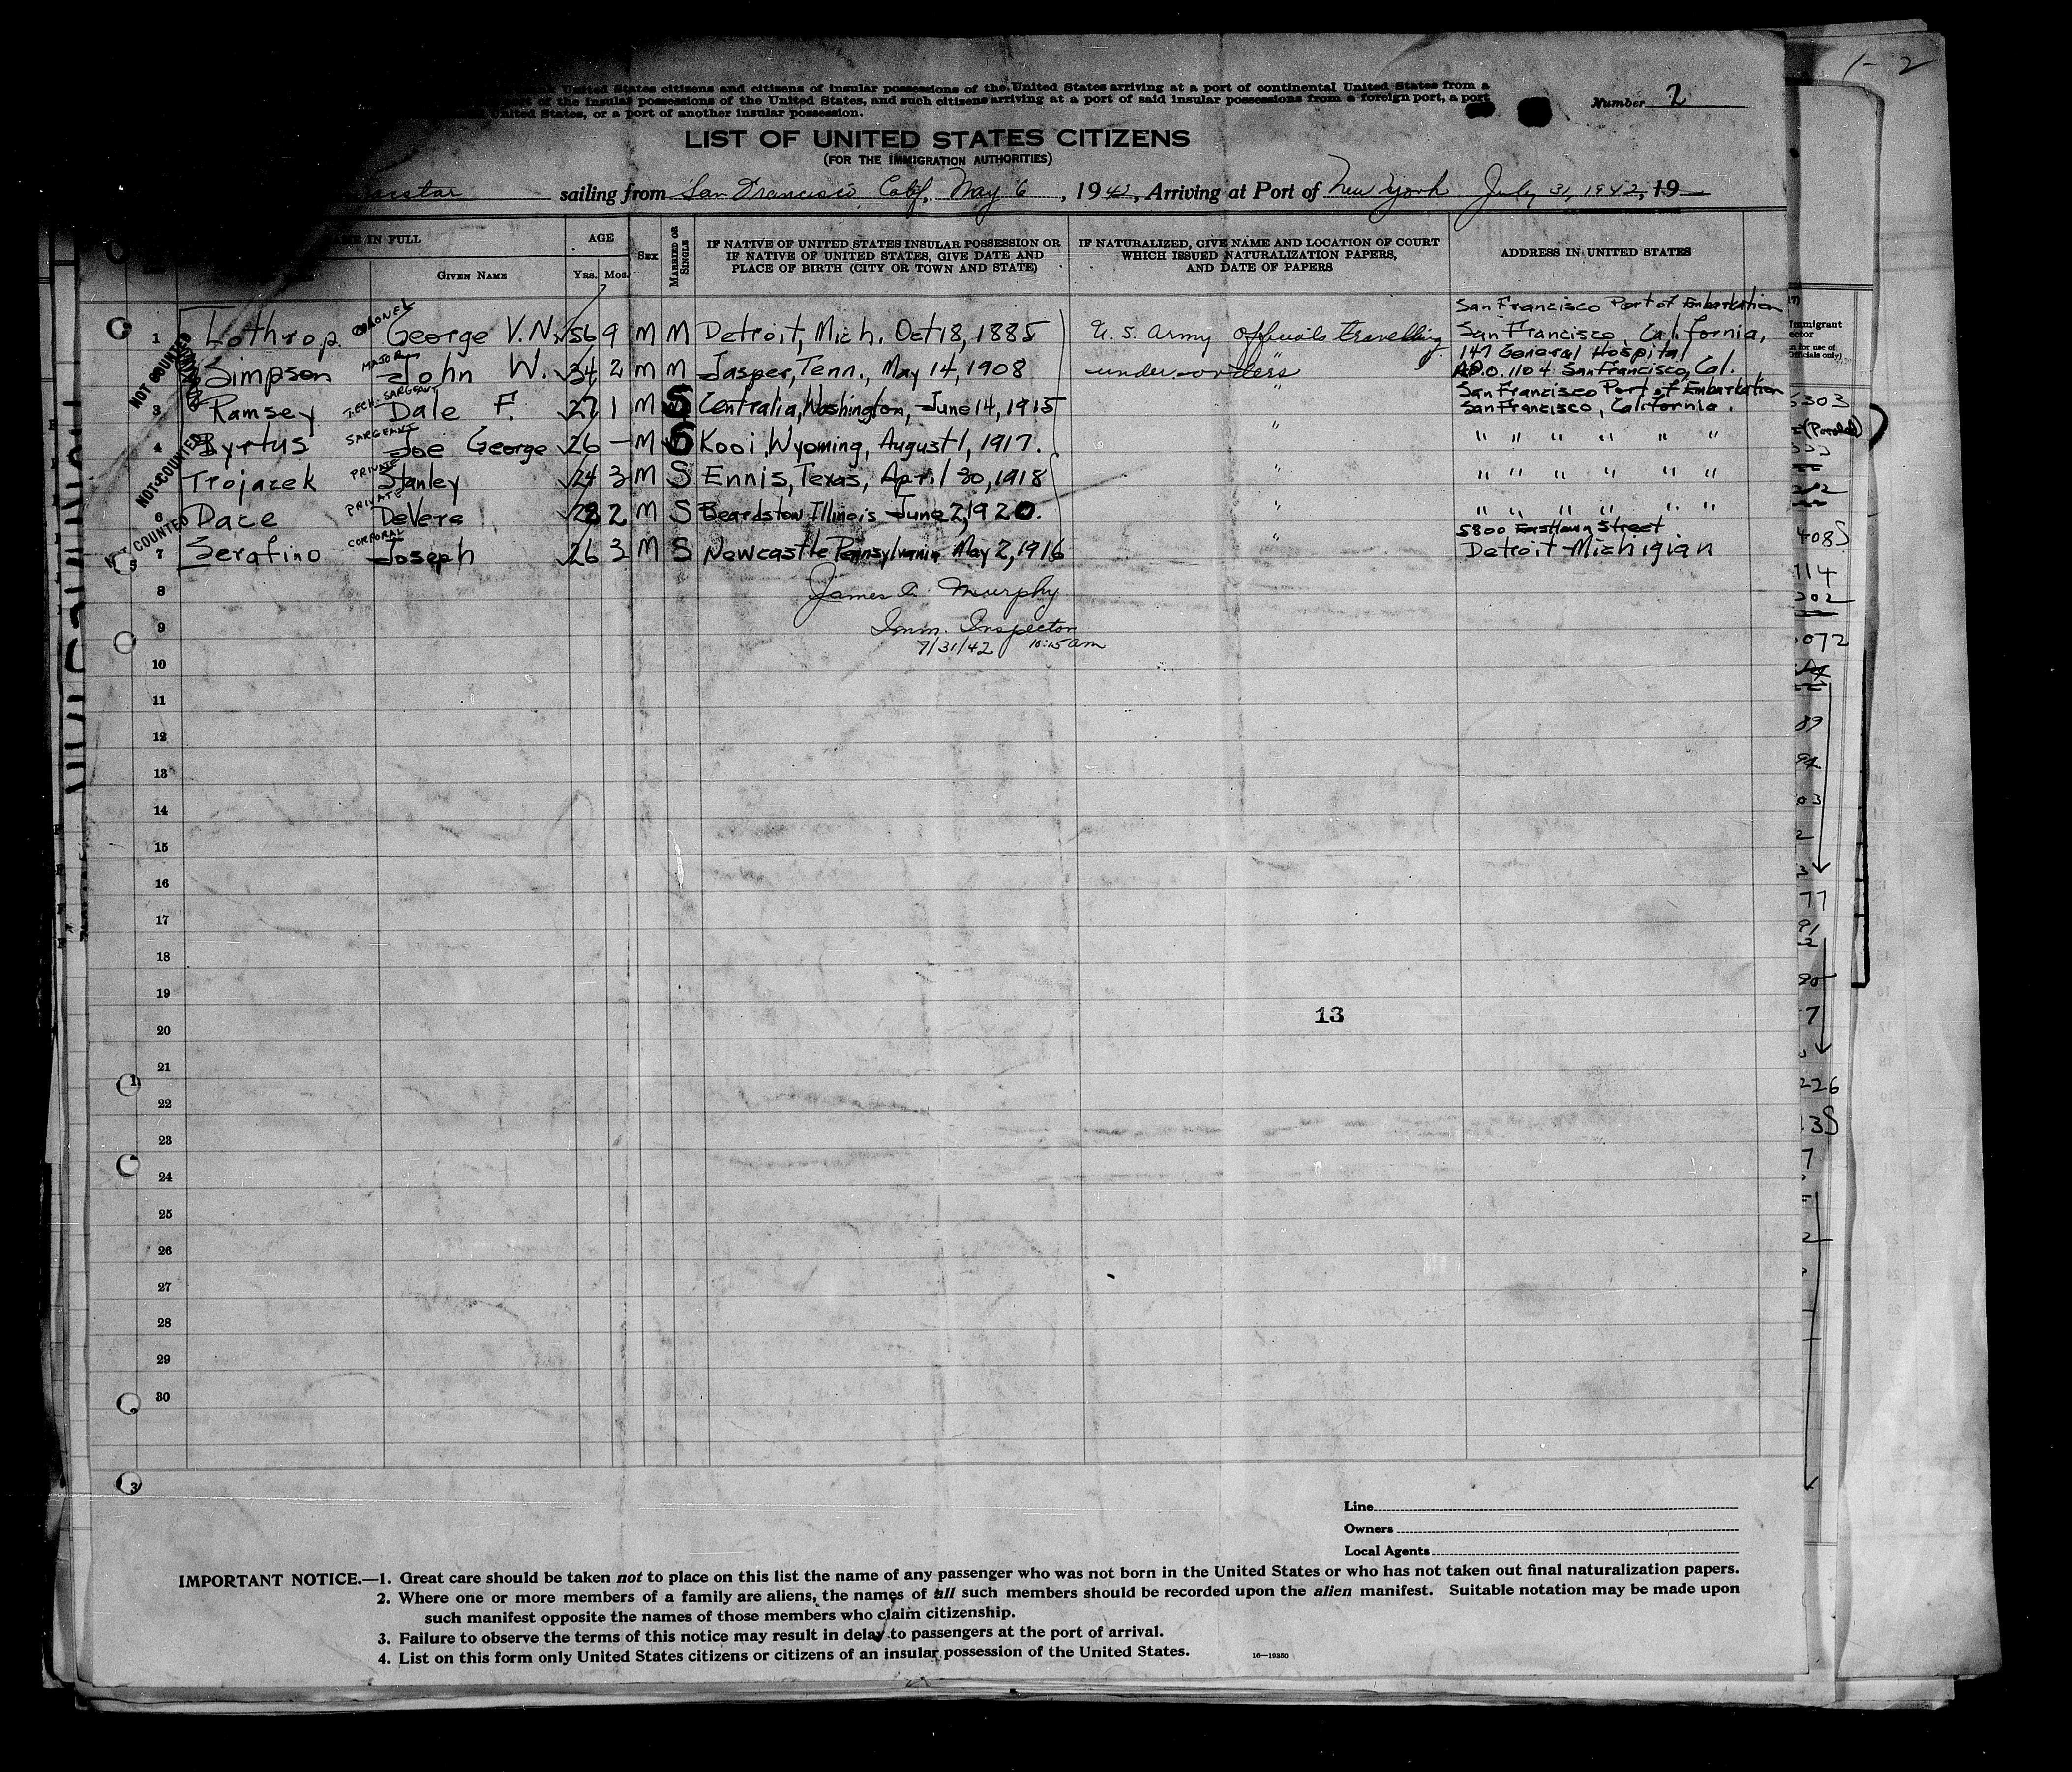 1-2
United States citizens and citizens of insular possessions of the United States arriving at a port of continental United States from a
port of the insular possessions of the United States, and such citizens arriving at a port of said insular possessions from a foreign port, a port
United States, or a port of another insular possession.
Number 2
LIST OF UNITED STATES CITIZENS
(FOR THE IMMIGRATION AUTHORITIES)
sailing from San Francisco Calif, May 6, 1942, Arriving at Port of New York July 31, 1942, 19
NAME IN FULL
AGE
SEX
MARRIED OR SINGLE
IF NATIVE OF UNITED STATES INSULAR POSSESSION OR
IF NATIVE OF UNITED STATES, GIVE DATE AND
PLACE OF BIRTH (CITY OR TOWN AND STATE)
IF NATURALIZED, GIVE NAME AND LOCATION OF COURT
WHICH ISSUED NATURALIZATION PAPERS,
AND DATE OF PAPERS
ADDRESS IN UNITED STATES
GIVEN NAME
YRS. MOS.
San Francisco Port of Embarkation
1 Lothrop COLONEL George V.N. 56 9 M M Detroit, Mich. Oct 18, 1885 U.S. Army officials travelling San Francisco, California,
147 General Hospital
Simpson MAJOR John W. 34 2 M M Jasper, Tenn., May 14, 1908 under orders A.P.O. 1104 San Francisco, Cal.
San Francisco Port of Embarkation
3 Ramsey TECH. SARGEANT Dale F. 27 1 M S Centralia, Washington, June 14, 1915 " San Francisco, California.
4 Byrtus SARGEANT Joe George 26 — M S Kooi, Wyoming, August 1, 1917. " " " " " " "
Trojacek PRIVATE Stanley 24 3 M S Ennis, Texas, April 30, 1918 " " " " " " "
6 Dace PRIVATE DeVere 22 2 M S Beardstow Illinois June 2, 1920. " " " " " " "
5800 Easthawn Street
7 Serafino CORPORAL Joseph 26 3 M S Newcastle Pennsylvania May 2, 1916 " Detroit Michigian
NOT COUNTED
NOT COUNTED
NOT COUNTED
8 James A. Murphy
9 Imm. Inspector
7/31/42 10:15 am
10
11
12
13
14
15
16
17
18
19
13
20
21
22
23
24
25
26
27
28
29
30
Line
Owners
Local Agents
IMPORTANT NOTICE.—1. Great care should be taken not to place on this list the name of any passenger who was not born in the United States or who has not taken out final naturalization papers.
2. Where one or more members of a family are aliens, the names of all such members should be recorded upon the alien manifest. Suitable notation may be made upon
such manifest opposite the names of those members who claim citizenship.
3. Failure to observe the terms of this notice may result in delay to passengers at the port of arrival.
4. List on this form only United States citizens or citizens of an insular possession of the United States.
16—19350